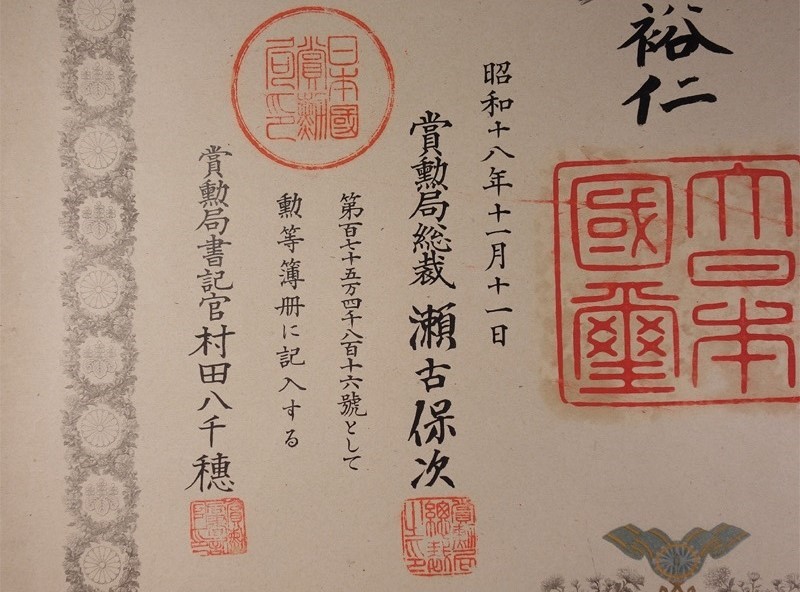 裕仁
大日本
國璽
昭和十八年十一月十一日
賞勲局総裁 瀬古保次
賞勲局総裁之印
第百七十五万四千八百十六號として
勲等簿冊に記入する
日本國
賞勲
局印
賞勲局書記官村田八千穗